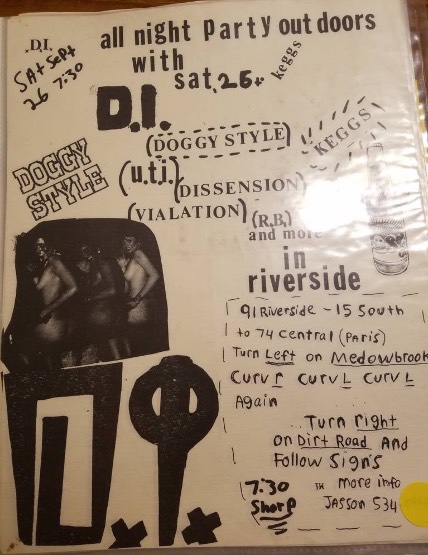 .D.I.
SAt Sept
26 7:30
all night Party out doors
with
sat, 26.
keggs
D.I.
(DOGGY STYLE)
KEGGS
DOGGY
STYLE
(u.t.i.)
(DISSENSION)
(VIALATION)
(R.B.)
and more
in
riverside
91 Riverside - 15 South
to 74 central (Paris)
Turn Left on Medowbrook
Curv r Curv L Curv L
Again
Turn right
on Dirt Road And
Follow Signs
7:30
Sharp
more info
JASSON 534
D.I.